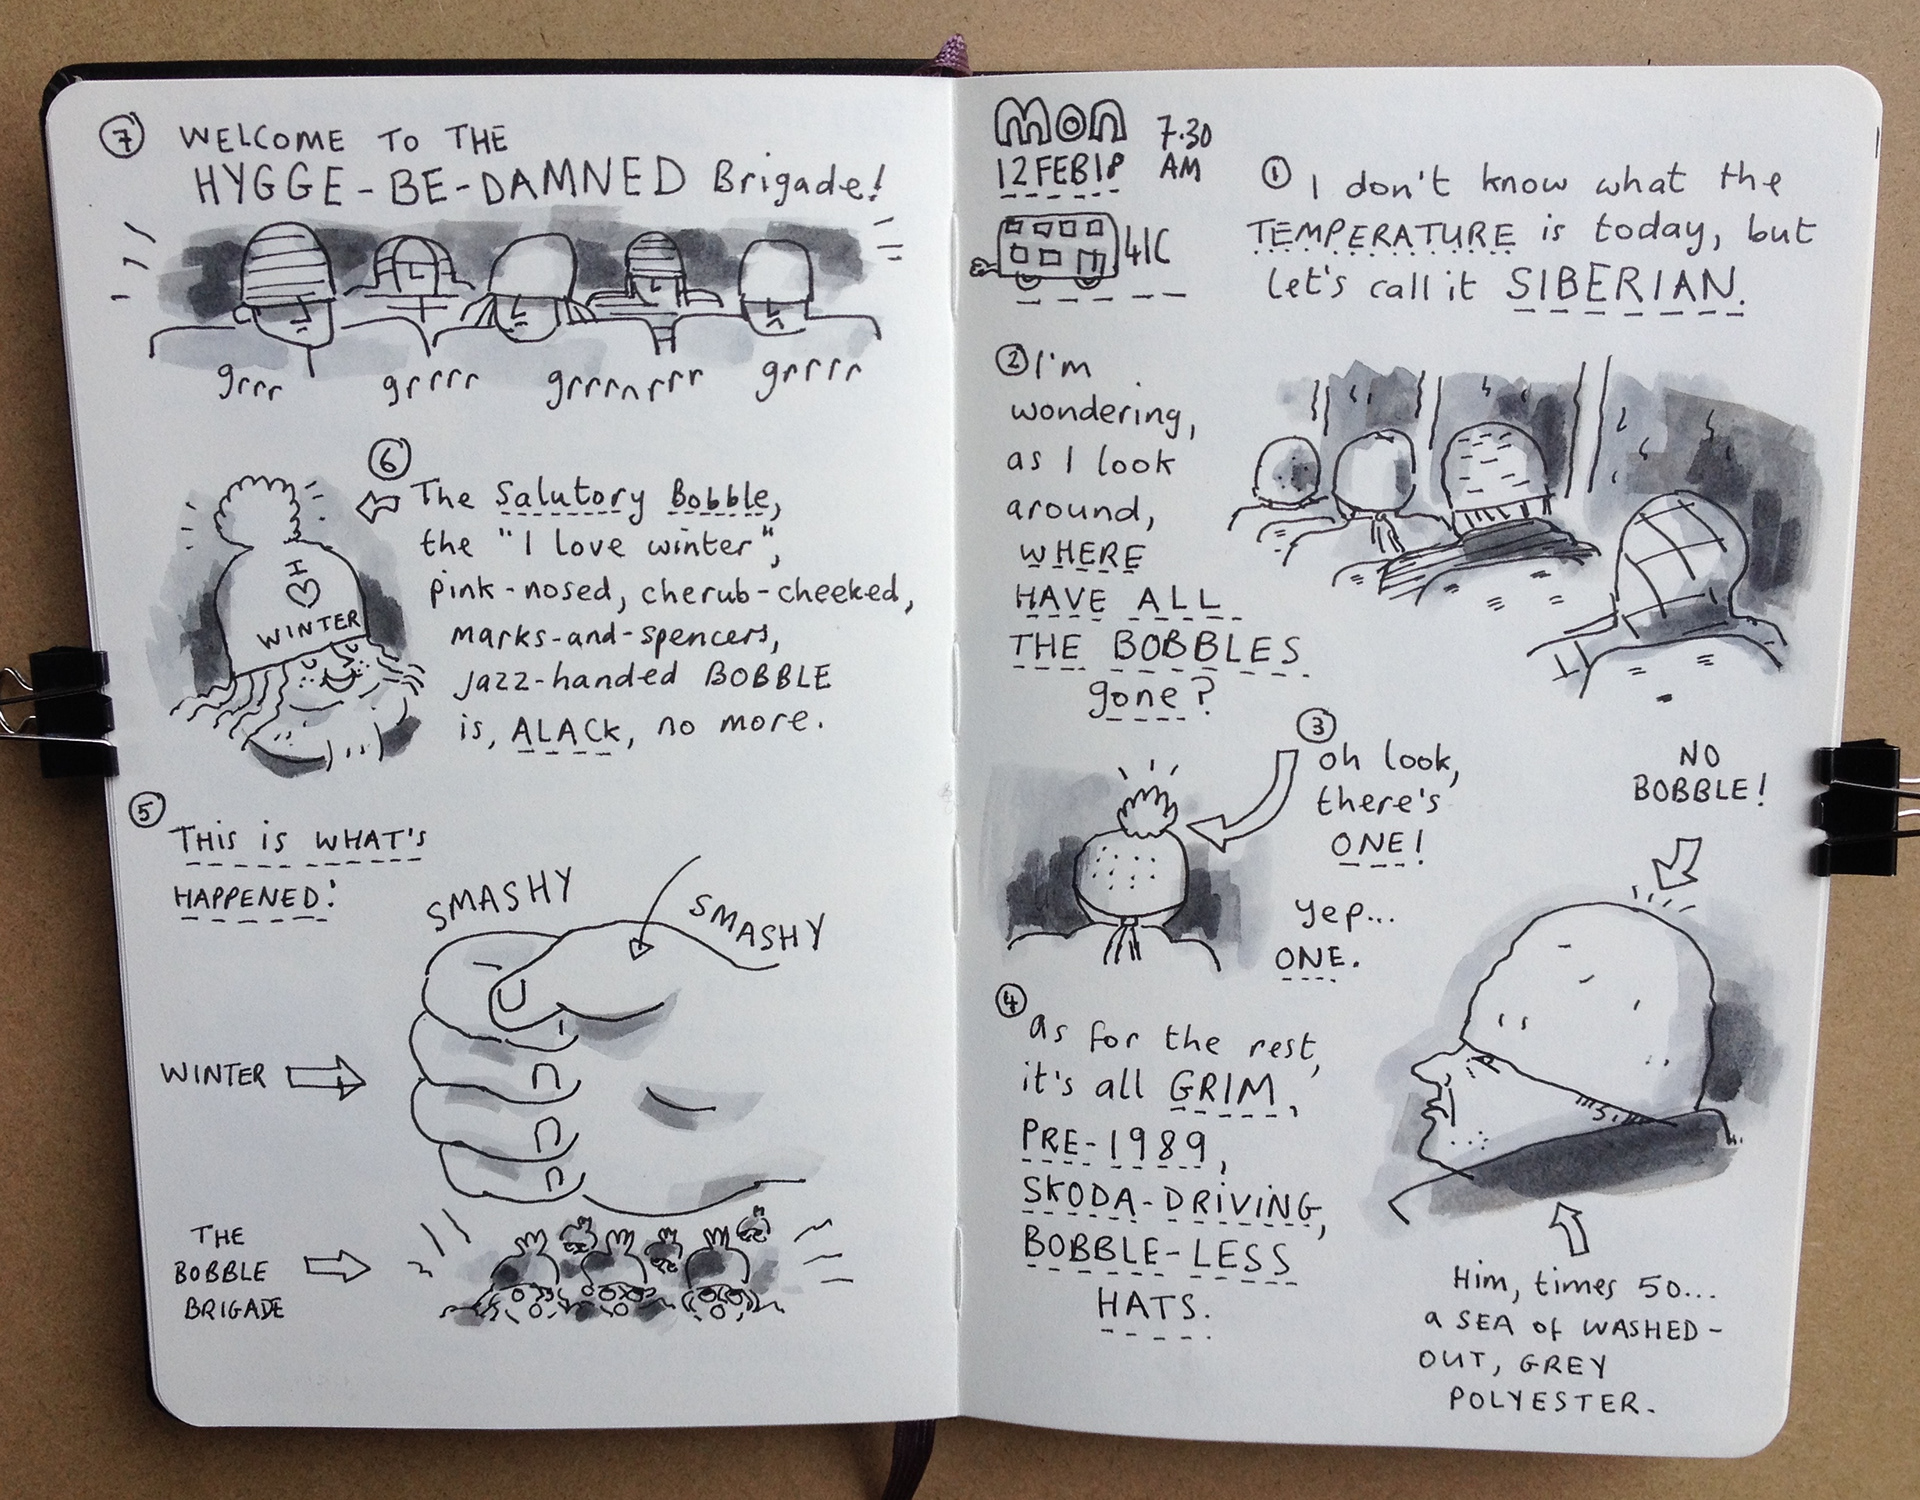 Mon 7.30
12FEB18 AM
41C
① I don't know what the
TEMPERATURE is today, but
let's call it SIBERIAN.
② I'm
wondering,
as I look
around,
WHERE
HAVE ALL
THE BOBBLES
gone?
③ oh look,
there's
ONE!
yep...
ONE.
NO
BOBBLE!
④ as for the rest,
it's all GRIM,
PRE-1989,
SKODA-DRIVING,
BOBBLE-LESS
HATS.
Him, times 50...
a SEA of WASHED-
OUT, GREY
POLYESTER.
⑤ THIS is WHAT'S
HAPPENED:
SMASHY
SMASHY
WINTER
THE
BOBBLE
BRIGADE
⑥ The Salutory Bobble,
the "I love winter",
pink-nosed, cherub-cheeked,
marks-and-spencers,
jazz-handed BOBBLE
is, ALACK, no more.
I
♡
WINTER
⑦ WELCOME TO THE
HYGGE-BE-DAMNED Brigade!
grrr grrrr grrrnrrr grrrr